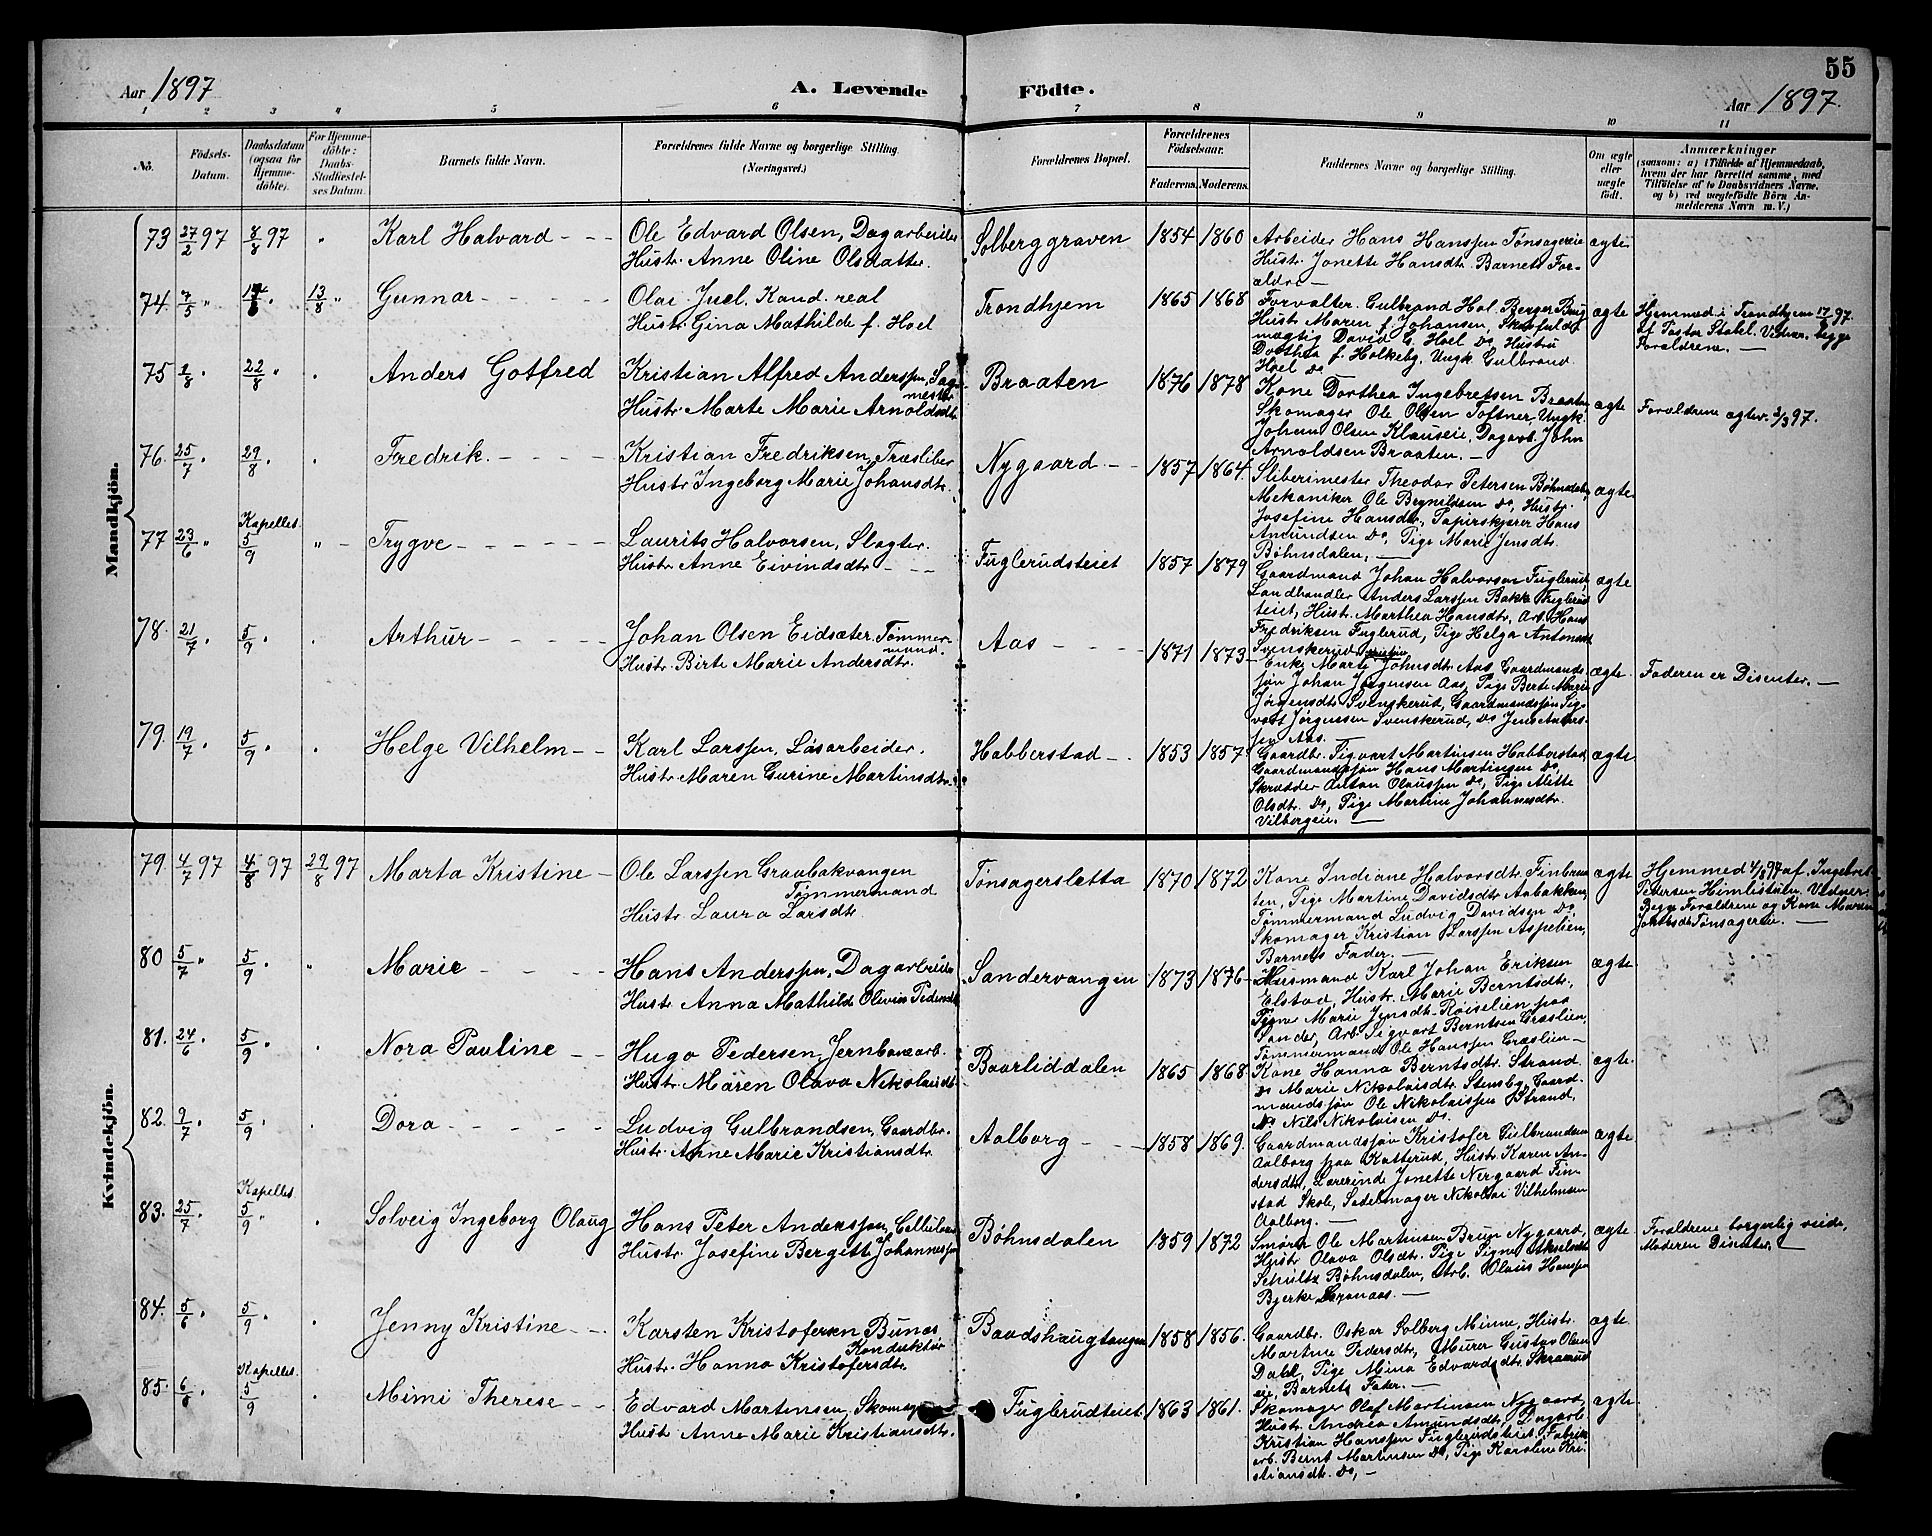 55
Aar 1897
A. Levende Födte.
Aar 1897.
1 2 3 4 5 6 7 8 9 10 11
No.
Födsels-Datum.
Daabsdatum (ogsaa för Hjemme-döbte).
For Hjemme-döbte: Daabs-Stadfæstel-ses Datum.
Barnets fulde Navn.
Forældrenes fulde Navne og borgerlige Stilling. (Næringsvei.)
Forældrenes Bopæl.
Forældrenes Födselsaar.
Faderens.
Moderens.
Faddernes Navne og borgerlige Stilling.
Om ægte eller uægte födt.
Anmærkninger
(saasom: a) i Tilfælde af Hjemmedaab, hvem der har forrettet samme, med Tilföielse af to Daabsvidners Navne, og b) ved uægtefödte Börn An-melderens Navn m. V.)
Mandkjön.
73 27/2 97 8/8 97 " Karl Halvard - - -
Ole Edvard Olsen, Dagarbeider
Hustr. Anne Oline Olsdatter.
Solberggraven 1854 1860
Arbeider Hans Hanssen Tønsagereie
Hustr. Jonette Hansdtr. Barnets For-
ældre -
ægte
74. 7/5 " 13/8 " Gunnar - - - - -
Olai Juel. Kand. real
Hustr. Gina Mathilde f. Hoel
Trondhjem 1865 1868
Forvalter Gulbrand Hoel
Hustr. Maren f. Johansen,
mægtig David G. Hoel Do Hustru
Dorthea f. Holkeby. Ungk. Gulbrand
Hoel Do
ægte
Hjemmed. i Trondhjem
af Pastor Stabel. Vidner, begge
Forældrene. -
75 1/8 " 22/8 " . Anders Gotfred
Kristian Alfred Anderssen, Sag-
mester
Hustr. Marte Marie Arnoldsdtr
Braaten 1876 1878
Kone Dorthea Ingebretsen Braaten
Skomager Ole Olsen Toftner, Ungk.
Johan Olsen Klauseie, Dagarb. John
Arnoldsen Braaten. -
ægte
Forældrene ægtev. 3/3 97.
76. 25/7 . 29/8 . . Fredrik. - - - -
Kristian Fredriksen, Træsliber
Hustr Ingeborg Marie Johansdtr.
Nygaard - - 1857 1864.
Sliberimester Theodor Petersen Bøhnsdalen,
Mekaniker Ole Brynildsen Do, Hustr.
Josefine Hansdtr., Papirskjærer Hans
Amundsen Do, Pige Marie Jensdtr.
Bøhnsdalen, -
ægte
77 23/6 " Kapellet. 5/9 " - Trygve - - - - - -
Laurits Halvorsen, Slagter.
Hustr. Anne Eivindsdtr - - -
Fuglerudsteiet 1857 1879
Gaardmand Johan Halvorsen Fuglerud,
Landhandler Anders Larssen Bakke Fuglerud
teiet, Hustr. Marthea Hansdtr, Arb. Hans
Fredriksen Fuglerud, Pige Helga Antonsdtr
Svenskerud
ægte
78. 21/7 . 5/9 . . Arthur - - - - -
Johan Olsen Eidsæter. Tømmer-
mand.
Hustr. Birte Marie Andersdtr.
Aas - - - - 1871 1873
Enke Marte Johnsdtr. Aas, Gaardmands-
søn Johan Jørgensen Aas, Pige Berte Marie
Jørgensdtr Svenskerud, Gaardmandssøn Sig-
vart Jørgenssen Svenskerud, Do Jens Anders-
sen Aas.
ægte.
Faderen er Disenter. -
79. 19/7 . 5/9 . . Helge Vilhelm - -
Karl Larssen, Løsarbeider.
Hustr. Maren Gurine Martinsdtr.
Habberstad - . 1853 1857
Gaardbr. Sigvart Martinsen Habberstad,
Gaardmandssøn Hans Martinsen Do,
Skrædder Anton Olaussen Do, Pige Mette
Olsdtr. Do, Pige Martine Johannesdtr.
Vilbergeie. -
ægte
Kvindekjön.
79. 4/7 97 4/8 97 29/8 97 Marta Kristine -
Ole Larssen Graabakvangen
Tømmermand
Hustr. Laura Larsdtr.
Tønsagersletta 1870 1872
Kone Indiane Halvorsdtr. Finbraa-
ten, Pige Martine Davidsdtr Aabakken,
Tømmermand Ludvig Davidsen Do
Skomager Kristian Larssen Aspelien,
Barnets Fader. -
ægte
Hjemmed 4/8 97 af Ingebret
Petersen Himlistuen. Vidner
Begge Forældrene og Kone Maren
Tønsagereie. -
80 5/7 " 5/9 . " Marie - - - -
Hans Anderssen, Dagarbeider
Hustr. Anna Mathilde Olivie Pedersdtr
Sandervangen 1873 1876
Husmand Karl Johan Eriksen
Elstad, Hustr. Marie Berntsdtr.,
Pige Marie Jensdtr. Røiselien paa
Sander, Arb. Sigvart Berntsen Græslien,
Tømmermand Ole Hanssen Græslien -
ægte
81. 24/6 . 5/9 . . Nora Pauline - -
Hugo Pedersen, Jernbanearb.
Hustr. Maren Olava Nikolaisdtr
Baarliddalen 1865 1868
Kone Hanna Berntsdtr. Strand
Do Marie Nikolaisdtr Stensby, Gaard-
mandssøn Ole Nikolaissen Strand,
Do Nils Nikolaisen Do.
ægte.
82. 9/7 . 5/9 . . Dora - - - - -
Ludvig Gulbrandsen, Gaardbr.
Hustr. Anne Marie Kristiansdtr.
Aalborg - - - 1858 1869.
Gaardmandssøn Kristofer Gulbrandsen
Aalborg paa Katterud, Hustr Karen An-
dersdtr, Lærerinde Jonette Nergaard Fin-
stad Skole, Sadelmager Nikolai Vilhelmsen
Aalborg. -
ægte
83. 25/7 . Kapellet 5/9 " . Solveig Ingeborg Olaug
Hans Peter Anderssen,
Hustr. Josefine Bergitte
Bøhnsdalen 1859 1872
Ole Martinsen Bruun Nygaard,
Hustr Olava Olsdtr. Pige Signe
Schultz Bøhnsdalen, Arb. Olaus Hanssen
Bjerke -
ægte
Forældrene borgerlig viede,
Moderen Disenter.
84. 5/6 . 5/9 . . Jenny Kristine - -
Karsten Kristofersen Bunes
Konduktør
Hustr. Hanna Kristofersdtr.
Baadshaugtangen 1858 1856.
Gaardbr. Oskar Solberg Minne, Hustr.
Martine Pedersdtr, Murer Gustav Olsen
Dahl, Pige Mina Edvardsdtr.
eie, Barnets Fader. -
ægte
85. 6/6 . Kapellet. 5/9 . Mimi Therese - -
Edvard Martinsen, Skomager
Hustr Anne Marie Kristiansdtr.
Fuglerudteiet 1863 1861.
Skomager Olaf Martinsen Nygaard,
Hustr. Andrea Amundsdtr, Dagarb.
Kristian Hanssen Fuglerudsteiet, Fabrik-
arb. Bernt Martinsen Do, Pige Karoline Kri-
stiansdtr. Do, -
ægte.